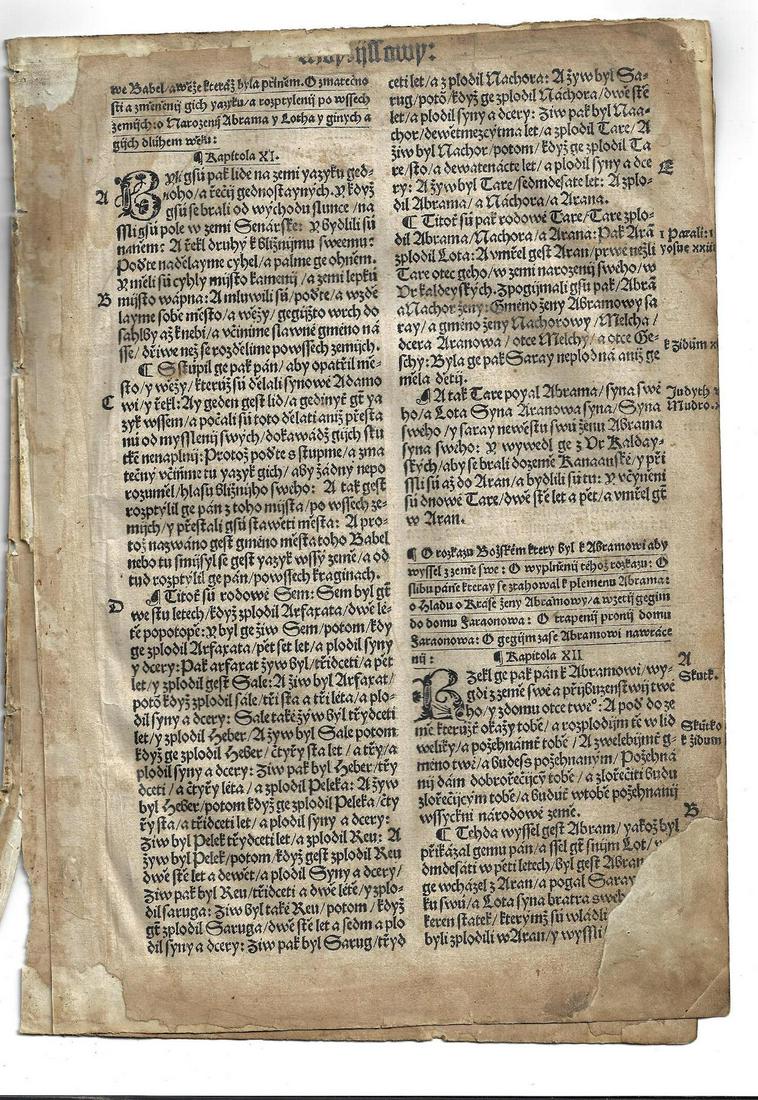 we Babel/a wěže kteráž byla při něm. O zmatečno-
sti a změněnij gich yazyku/a rozptylenij po wssech
zemijch: o Narozenij Abrama y Lotha y giných a
gijch dluhem wěku:
¶ Kapitola XI.
A
Byli gsú pak lide na zemi yazyku ged-
noho/a řečij gednostayných. y když
gsú se brali od wychodu slunce/na
ssli gsú pole w zemi Senárské: y bydlili sú
naněm: A řekl druhý k bližnijmu swemu:
Poďte naděláyme cyhel/a palme ge ohněm.
y měli sú cyhly mijsto kamenij/a zemi lepkú
B
mijsto wápna: A mluwili sú/poďte/a wzdě
layme sobě město/a wěžy/gegijžto wrch do
sahlby až k nebi/a včiníme slawné gméno ná
sse/dřiwe než se rozdělíme po wssech zemijch.
¶ Sstúpil ge pak pán/aby opatřil mě-
sto/y wěžy/kterúž sú dělali synowé Adamo
C
wi/y řekl: Ay geden gest lid/a gediný gt ya
zyk wssem/a počali sú toto dělati aniž přesta
nú od myssleníj swých/dokawádž gijch sku
tkě nenaplnij: Protož poďte sstupme/a zma
tečný včiňme tu yazyk gich/aby žádný nepo
rozuměl/hlasu bližnijho swého: A tak gest
rozptýlil ge pán z toho mijsta/po wssech ze-
mijch/y přestali gsú stawěti města: A pro-
tož nazwáno gest gméno města toho Babel
nebo tu smijsyl se gest yazyk wssij země/a od
tud rozptylil ge pán/po wssech kraginach.
D
¶ Titoť sú rodowé Sem: Sem byl gt
we stu letech/když zplodil Arfaxata/dwě lé-
tě popotopě: y byl ge žiw Sem/potom/kdy
ge zplodil Arfaxata/pět set let/a plodil syny
y dcery: Pak arfaxat žyw byl/třidceti/a pět
let/y zplodil gest Sale: A žiw byl Arfaxat/
potō když zplodil sale/tři sta a tři léta/a plo-
dil syny a dcery: Sale také žyw byl třydceti
let/y zplodil Heber/A žyw byl Sale potom
když ge zplodil Heber/čtyřy sta let/a třy/a
plodil syny a dcery: žiw pak byl Heber/třy
dceti/a čtyřy léta/a zplodil Peleka: A žyw
byl Heber/potom když ge zplodil Peleka/čty
řy sta/a třidceti let/a plodil syny a dcery:
žiw byl Pelek třydceti let/a zplodil Reu: A
žyw byl Pelek/potom/když gest zplodil Reu
dwě stě let a dewět/a plodil Syny a dcery/
žiw pak byl Reu/třidceti a dwě létě/y zplo-
dil saruga: žiw byl také Reu/potom/když
gt zplodil Saruga/dwě stě let a sedm a plo
dil syny a dcery: žiw pak byl Sarug/třyd
ceti let/a zplodil Nachora: A žyw byl Sa-
rug/potō/když ge zplodil Nachora/dwě stě
let/a plodil syny a dcery: žiw pak byl Naa-
chor/dewětmezcytma let/a zplodil Tare/A
žiw byl Nachor/potom/když ge zplodil Ta
re/sto/a dewatenácte let/a plodil syny a dce
E
ry: A žyw byl Tare/sedmdesáte let: A zplo-
dil Abrama/a Náchora/a Arana.
¶ Titoť sú pak rodowé Tare/Tare zplo-
dil Abrama/Nachora/a Arana: Pak Arā
1 Parali: 1
zplodil Lota: A vmřel gest Aran/prwe nežli
yosue xxiiii
Tare otec geho/w zemi narozenij swého/w
Vr kaldeyských. Zpogijmali gsú pak/Abrā
a Nachor ženy: Gméno ženy Abramowy sa
ray/a gméno ženy Nachorowy/Melcha/
dcera Aranowa/otce Melchy/a otce Ge-
k židům xi
schy: Byla ge pak Saray neplodná aniž ge
měla dětij.
¶ A tak Tare poyal Abrama/syna swé
Judyth v
ho/a Lota Syna Aranowa syna/Syna
Mudro. x
swého/y saray newěstu swú ženu Abrama
syna swého: y wywedl ge z Vr Kalday-
ských/aby se brali do země Kanaanské/y při
ssli sú až do Aran/a bydlili sú tu: y včyněni
sú dnowé Tare/dwě stě let a pět/a vmřel gt
w Aran.
¶ O rozkazu Božském ktery byl k Abramowi aby
wyssel z země swe: O wyplněnij téhož rozkazu: O
slibu páně kteray se ztahowal k plemenu Abrama:
o Hladu o Kráse ženy Abramowy/a wzetij gegijm
do domu Faraonowa: O trapenij pronij domu
Faraonowa: O gegijm zase Abramowi nawráce
nij:
¶ Kapitola XII
A
Skutk.
Rzekl ge pak pán k Abramowi/wy-
gdi z země swé a přijbuzenstwij twé
ho/y z domu otce tweº: A poď do ze
mě kterúžť okažy tobě/a rozplodijm tě w lid
Skutko
weliký/a požehnámť tobě/A zwelebijmť g-
k židum
méno twé/a budess požehnaným/Požehná
nij dám dobrořečijcý tobě/a zlořečiti budu
zlořečijcým tobě/a budúť w tobě požehnanij
wssyckni národowé země.
B
¶ Tehda wyssel gest Abram/yakož byl
přikázal gemu pán/a ssel gt snijm Lot/
dmdesáti w pěti letech/byl gest Abram
ge wcházel z Aran/a pogal Saray
ku swú/a Lota syna bratra swéh
keren statek/kterýmž sú wládli
byli zplodili w Aran/y wyssli